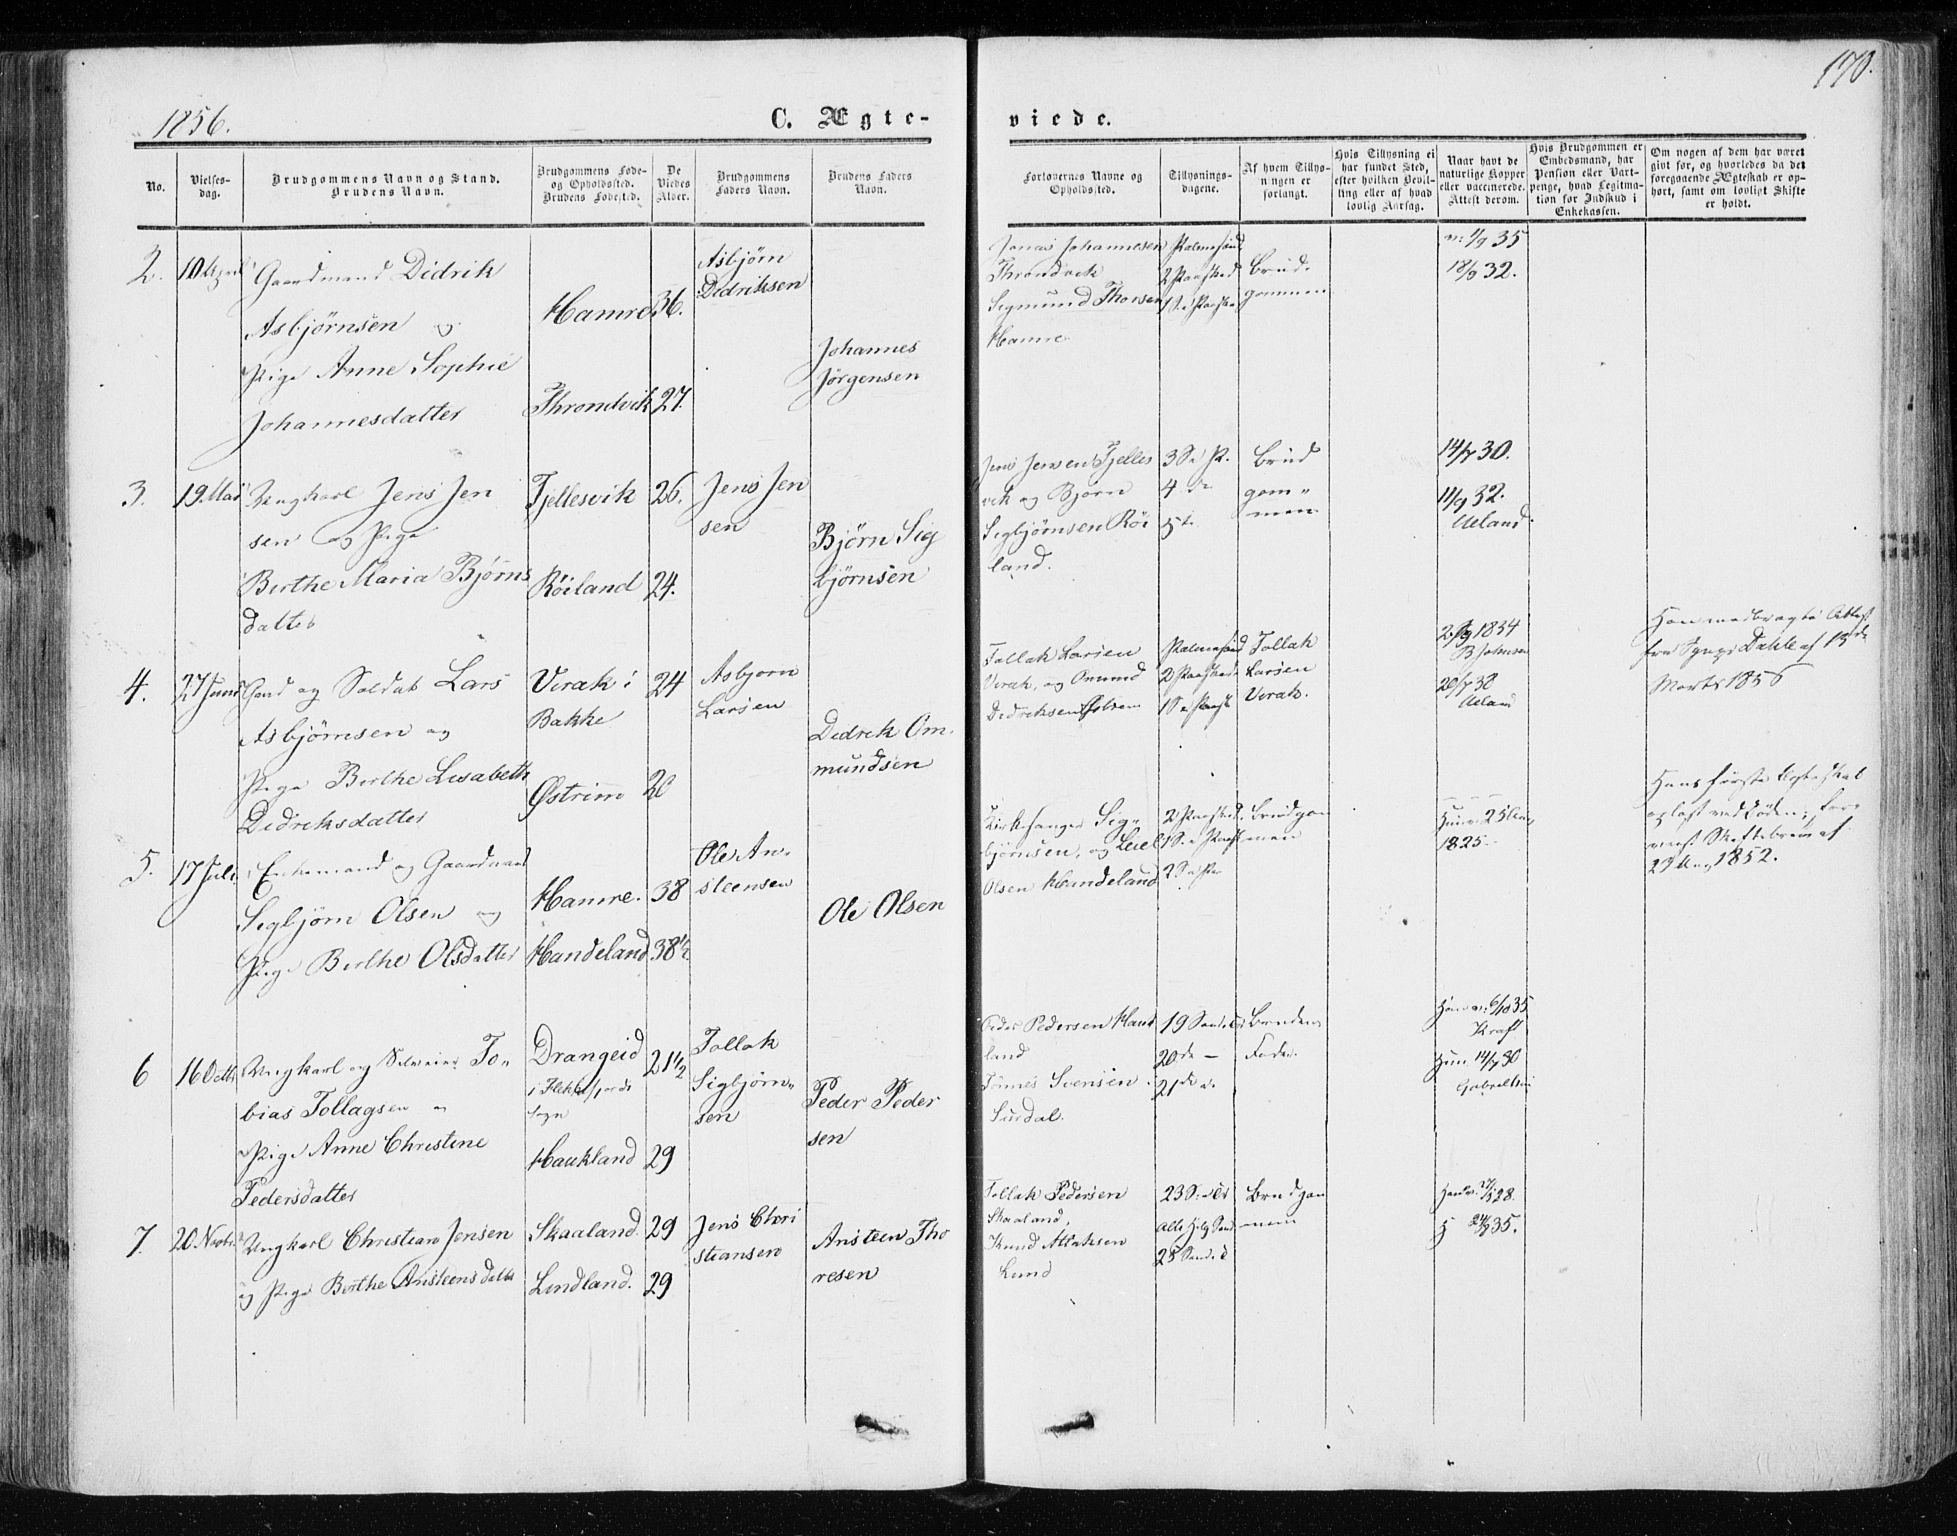 170.
1856.
C. Ægte-
viede.
No.
Vielses-
dag.
Brudgommens Navn og Stand.
Brudens Navn.
Brudgommens Føde-
og Opholdssted.
Brudens Fødested.
De
Viedes
Alder.
Brudgommens
Faders Navn.
Brudens Faders
Navn.
Forlovernes Navne og
Opholdssted.
Tillysnings-
dagene.
Af hvem Tillys-
ningen er
forlangt.
Hvis Tillysning ei
har fundet Sted,
efter hvilken Bevil-
ling eller af hvad
lovlig Aarsag.
Naar havt de
naturlige Kopper
eller vaccinerede.
Attest derom.
Hvis Brudgommen er
Embedsmand, har
Pension eller Vart-
penge, hvad Legitima-
tion for Indskud i
Enkekassen.
Om nogen af dem har været
gift før, og hvorledes da det
foregaaende Ægteskab er op-
hørt, samt om lovligt Skifte
er holdt.
2.
10 April
Gaardmand Didrik
Asbjørnsen og
Pige Anne Sophie
Johannesdatter
Hamre
Throndvik
36.
27.
Asbjørn
Didriksen
Johannes
Jørgensen
Jonas Johannesen
Throndvik
Sigmund Thorsen
Hamre
Palmesønd
2 Paasked
1 S. e Paaske
Brud-
gommen
v. 1/9 35
18/9 32.
3.
19. Mai
Ungkarl Jens Jen
sen og Pige
Berthe Maria Bjørns
datter
Fjellesvik
Røiland
26.
24.
Jens Jen
sen
Bjørn Sig
bjørnsen
Jens Jensen Fjelles
vik og Bjørn
Sigbjørnsen Røi
land.
3 S. e P.
4 de
5 t.
Brud
gom"
men
14/7 30.
11/9 32.
Ueland.
4.
27 Juni
Gend og Soldat Lars
Asbjørnsen og
Pige Berthe Lisabeth
Didriksdatter
Virak i
Bakke
Østrim
24
20
Asbjørn
Larsen
Didrik Om-
mundsen
Tollak Larsen
Virak, og Omund
Didriksen Østrem
Palmesønd
2 Paaskeda
1 S. e Paask
Tollak
Larsen
Virak.
1834
B Johnsen
20/7 38
Ueland
Han medbragte Attest
fra Sgnpr Dahle af 15de
Marts 1856
5.
17 Juli
Enkemand og Gaardmand
Sigbjørn Olsen og
Pige Berthe Olsdatter
Hamre.
Handeland
38
38½
Ole An-
steensen
Ole Olsen
Kirkesanger Sig"
bjørnsen, og
Olsen Handeland
2 Paasked.
1 S. e Paask
2 S. e Pa
Brudgom
men
1825.
Hans første Egteskab
opløst ved Døden;
Skiftebrev af
1852.
6
16 Octbr
Ungkarl og Selveier To"
bias Tollagsen og
Pige Anne Christine
Pedersdatter
Drangeid
i Flekkefjords
Sogn
Haukland
21½
29
Tollak
Sigbjørn"
sen
Peder Peder
sen
Peder Pedersen Hauk
land
Tønnes Svensen
Surdal.
19 Sønd. e
20 de —
21 de
Brudens
Fader.
Han v. 6/10 35
Kraft
Hun 14/7 30
Gabrielsen
7.
20. Novbr.
Ungkarl Christian Jensen
og Pige Berthe Ansteensdatter
Skaaland.
Lindland.
29
29
Jens Chri
stiansen
Ansteen Tho
resen
Tollak Pedersen
Skaaland,
Knud Atlaksen
Lund
23 S. e Tr
Alle Helg Sønd
25 Sønd. e
Brudgom
men
28.
35.